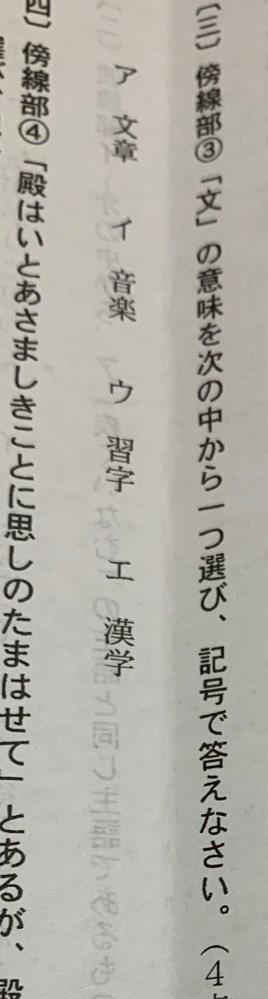 〔三〕傍線部③「文」の意味を次の中から一つ選び、記号で答えなさい。（4
ア 文章 イ 音楽 ウ 習字 エ 漢学
四〕傍線部④「殿はいとあさましきことに思しのたまはせて」とあるが、殿